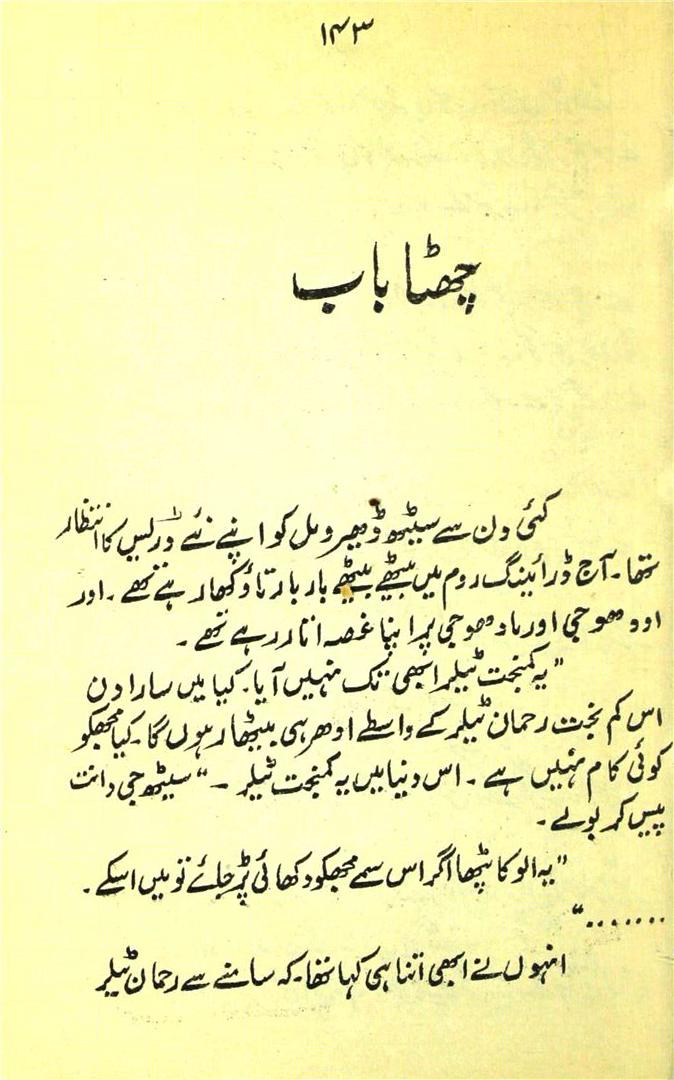 ۱۴۳
چھٹا باب
کئی دن سے سیٹھ ڈھیرومل کو اپنے نئے ڈریس کا انتظار
تھا۔ آج ڈرائینگ روم میں بیٹھے بیٹھے بار بار تاؤ کھا رہے تھے۔ اور
اودھوجی اور مادھوجی پر اپنا غصہ اتار رہے تھے۔
"یہ کمبخت ٹیلر ابھی تک نہیں آیا۔ کیا میں سارا دن
اس کم بخت رحمان ٹیلر کے واسطے ادھر ہی بیٹھا رہوں گا۔ کیا مجھکو
کوئی کام نہیں ہے۔ اس دنیا میں یہ کمبخت ٹیلر ۔" سیٹھ جی دانت
پیس کر بولے۔
"یہ الو کا پٹھا اگر اس سمے مجھکو دکھائی پڑ جائے تو میں اسکے۔
........"
انہوں نے ابھی اتنا ہی کہا تھا۔ کہ سامنے سے رحمان ٹیلر